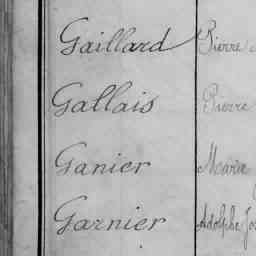 Gaillard Pierre
Gallais Pierre
Ganier Marie
Garnier Adolphe Jos